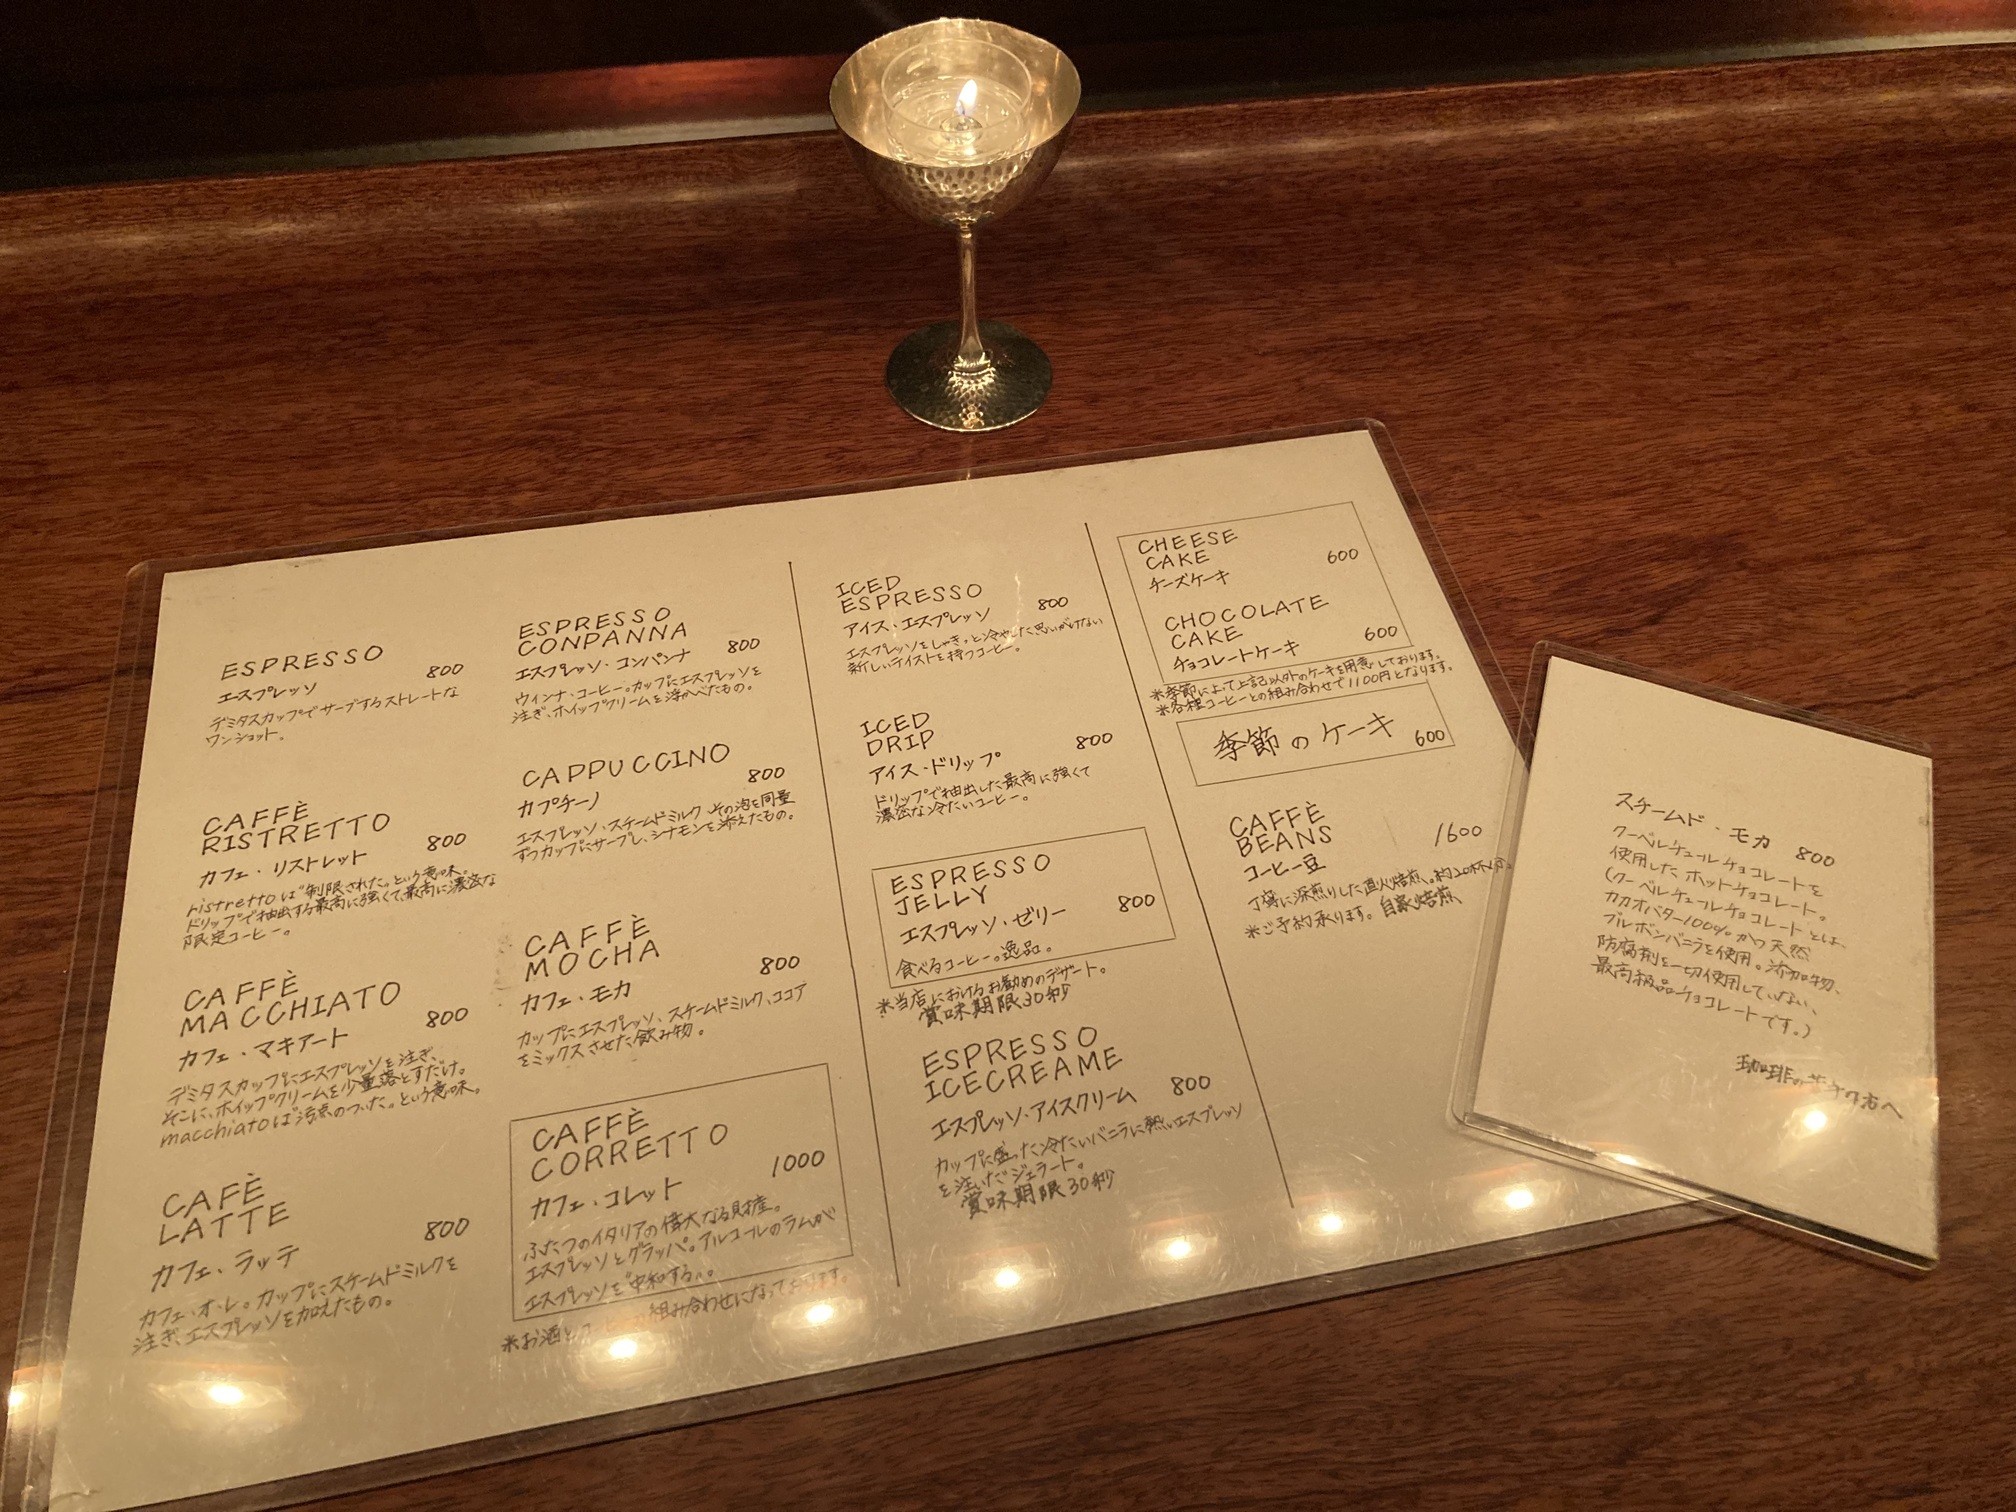 ESPRESSO
エスプレッソ 800
デミタスカップでサーブするストレートな
ワンショット。
CAFFÈ
RISTRETTO
カフェ・リストレット 800
ristrettoは"制限された"という意味。
ドリップで抽出する最高に強くて、最高に濃密な
限定コーヒー。
CAFFÈ
MACCHIATO
カフェ・マキアート 800
デミタスカップにエスプレッソを注ぎ、
そこに、ホイップクリームを少量落とすだけ。
macchiatoは"汚点のついた"という意味。
CAFÈ
LATTE
カフェ・ラッテ 800
カフェ・オ・レ。カップにスチームドミルクを
注ぎ、エスプレッソを加えたもの。
ESPRESSO
CONPANNA
エスプレッソ・コンパンナ 800
ウィンナ・コーヒー。カップにエスプレッソを
注ぎ、ホイップクリームを浮かべたもの。
CAPPUCCINO
カプチーノ 800
エスプレッソ・スチームドミルク、その泡を同量
ずつカップにサーブし、シナモンを添えたもの。
CAFFÈ
MOCHA
カフェ・モカ 800
カップにエスプレッソ、スチームドミルク、ココア
をミックスさせた飲み物。
CAFFÈ
CORRETTO
カフェ・コレット 1000
ふたつのイタリアの偉大なる財産。
エスプレッソとグラッパ。アルコールのラムが
エスプレッソを"中和する"。
※お酒と 組み合わせになっております。
ICED
ESPRESSO
アイス・エスプレッソ 800
エスプレッソをしゃきっと冷やした思いがけない
新しいテイストを持つコーヒー。
ICED
DRIP
アイス・ドリップ 800
ドリップで抽出した最高に強くて
濃密な冷たいコーヒー。
ESPRESSO
JELLY
エスプレッソ・ゼリー 800
食べるコーヒー。逸品。
※当店におけるお勧めのデザート。
賞味期限30秒
ESPRESSO
ICECREAME
エスプレッソ・アイスクリーム 800
カップに盛った冷たいバニラに熱いエスプレッソ
を注いだジェラート。
賞味期限30秒
CHEESE
CAKE 600
チーズケーキ
CHOCOLATE
CAKE 600
チョコレートケーキ
※季節によって上記以外のケーキを用意しております。
※各種コーヒーとの組み合わせで1100円となります。
季節のケーキ 600
CAFFÈ
BEANS 1600
コーヒー豆
丁寧に深煎りした直火焙煎。約20杯分。
※ご予約承ります。自家焙煎
スチームド・モカ 800
クーベルチュールチョコレートを
使用したホットチョコレート。
(クーベルチュールチョコレートとは、
カカオバター100%かつ天然
ブルボンバニラを使用。添加物、
防腐剤を一切使用していない、
最高級品チョコレートです。)